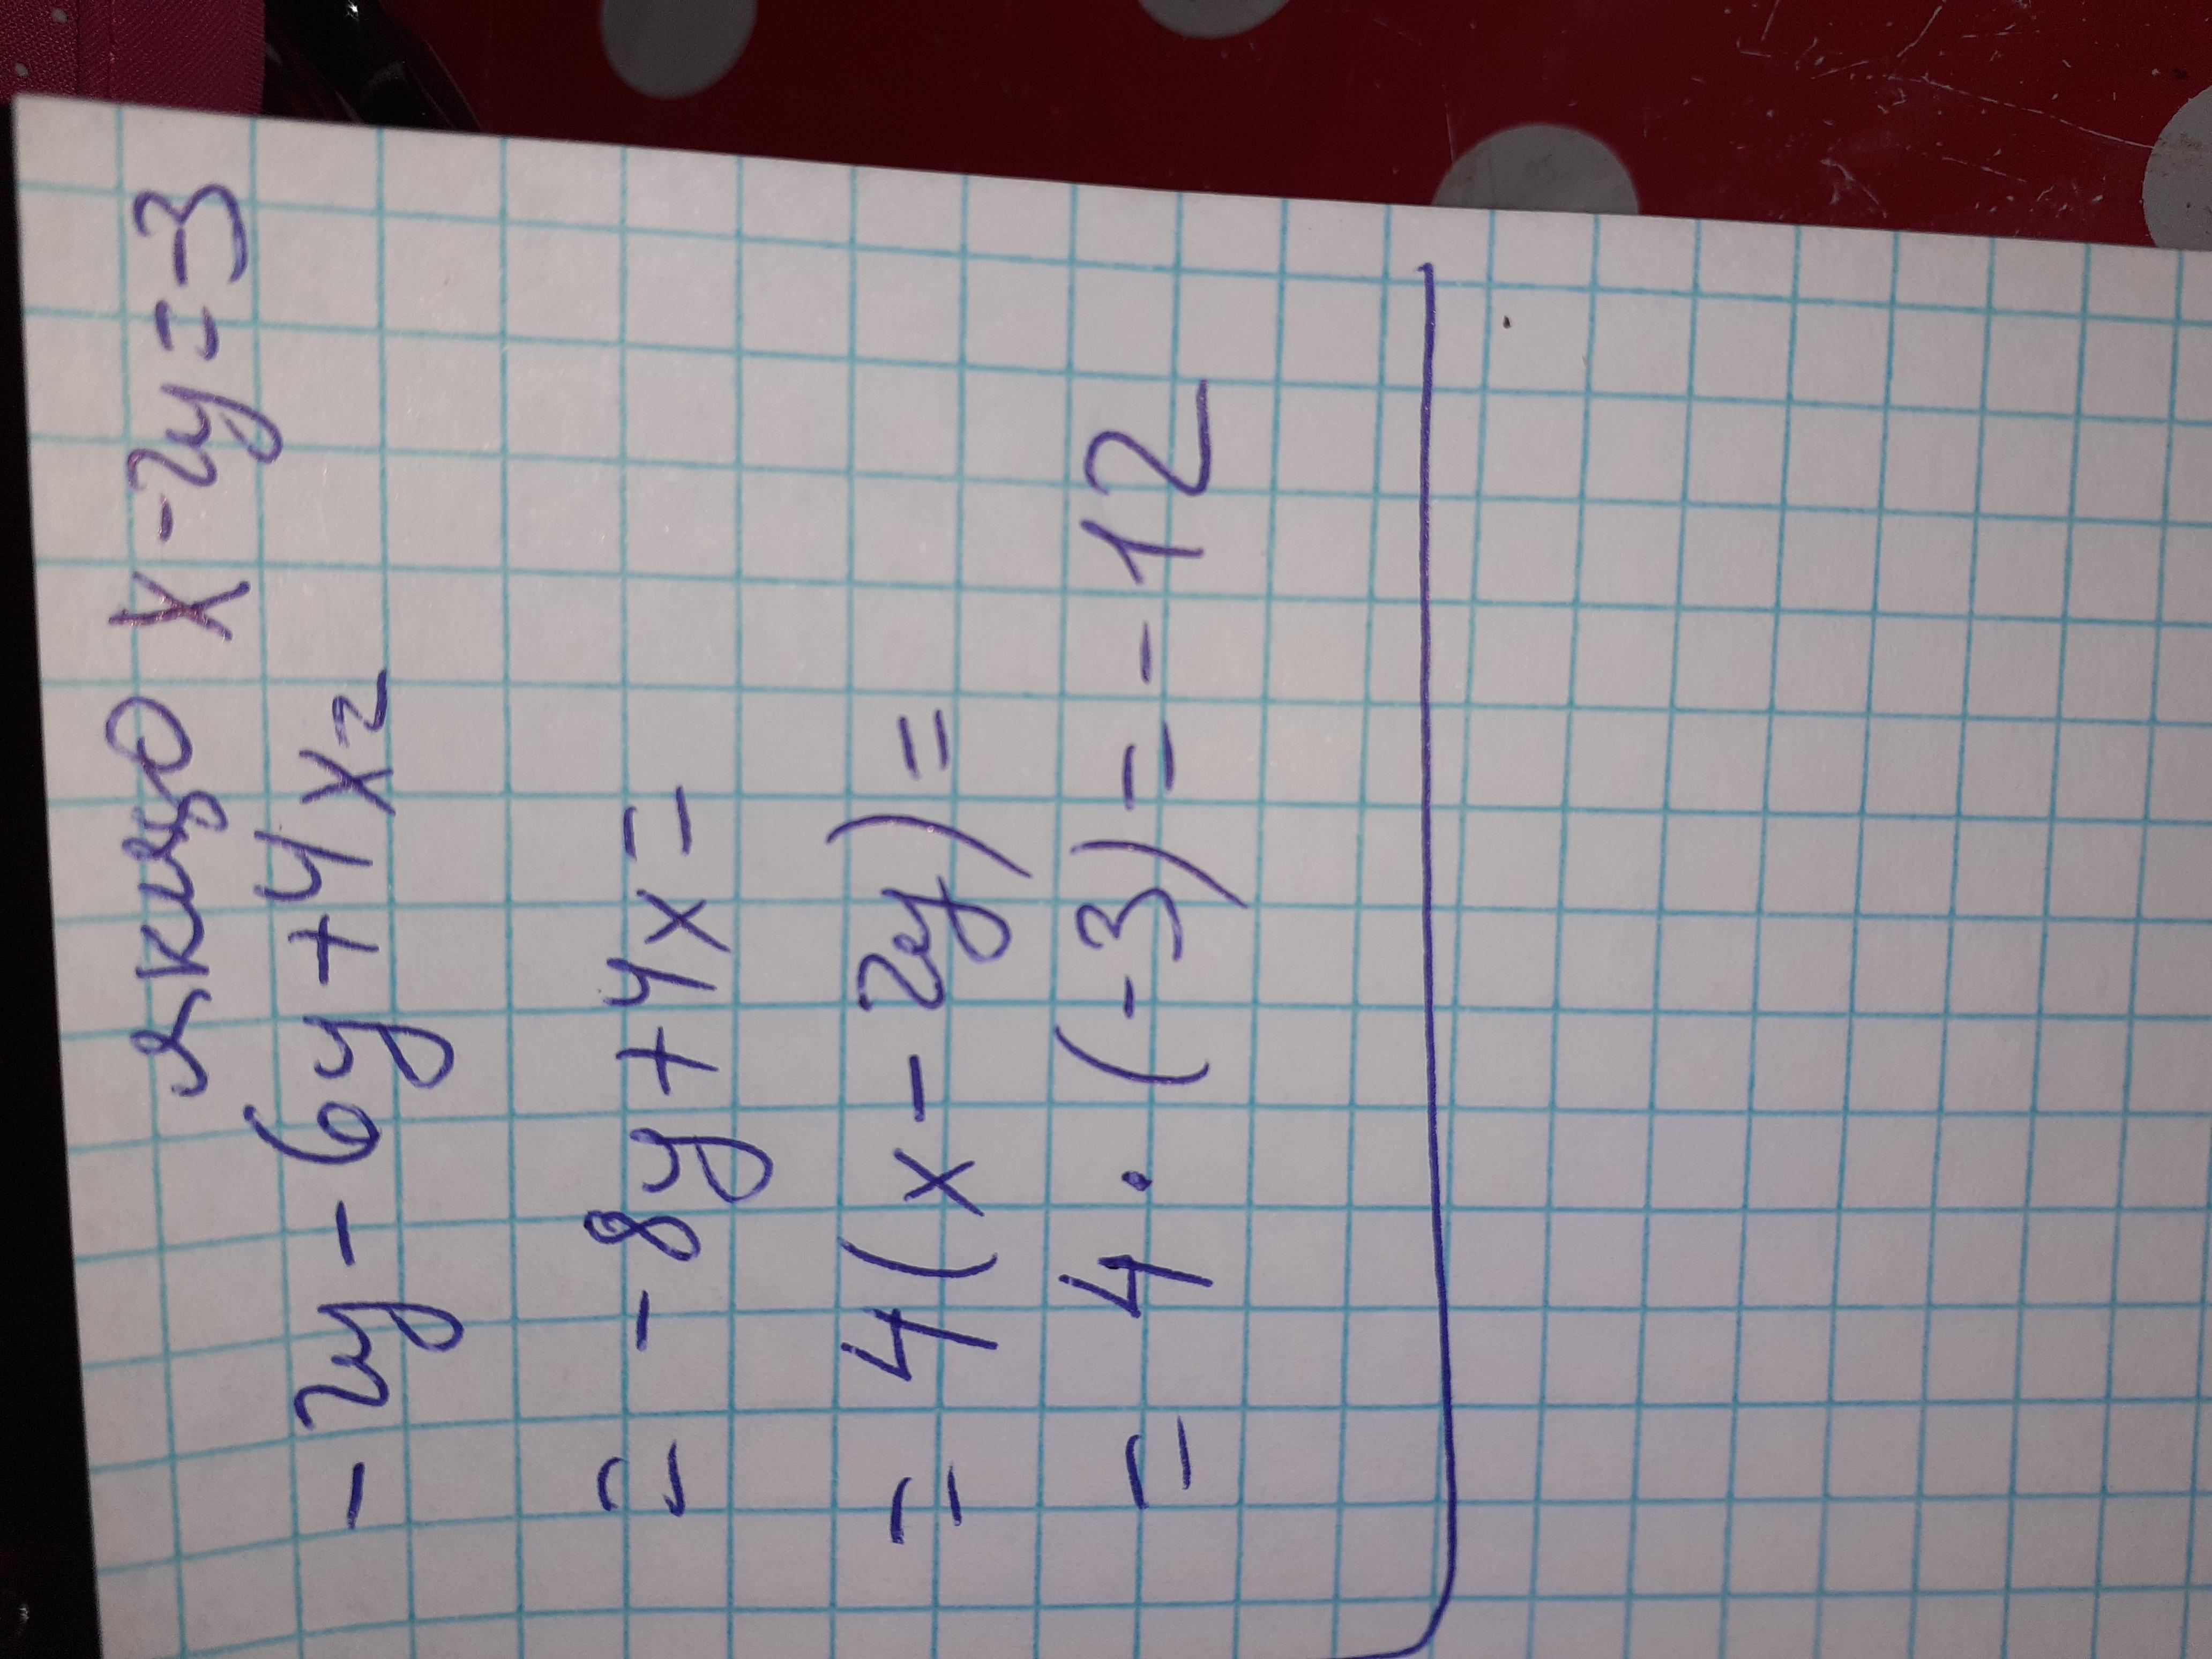 якщо x-2y=-3
-2y-6y+4x=
=-8y+4x=
=4(x-2y)=
=4·(-3)=-12